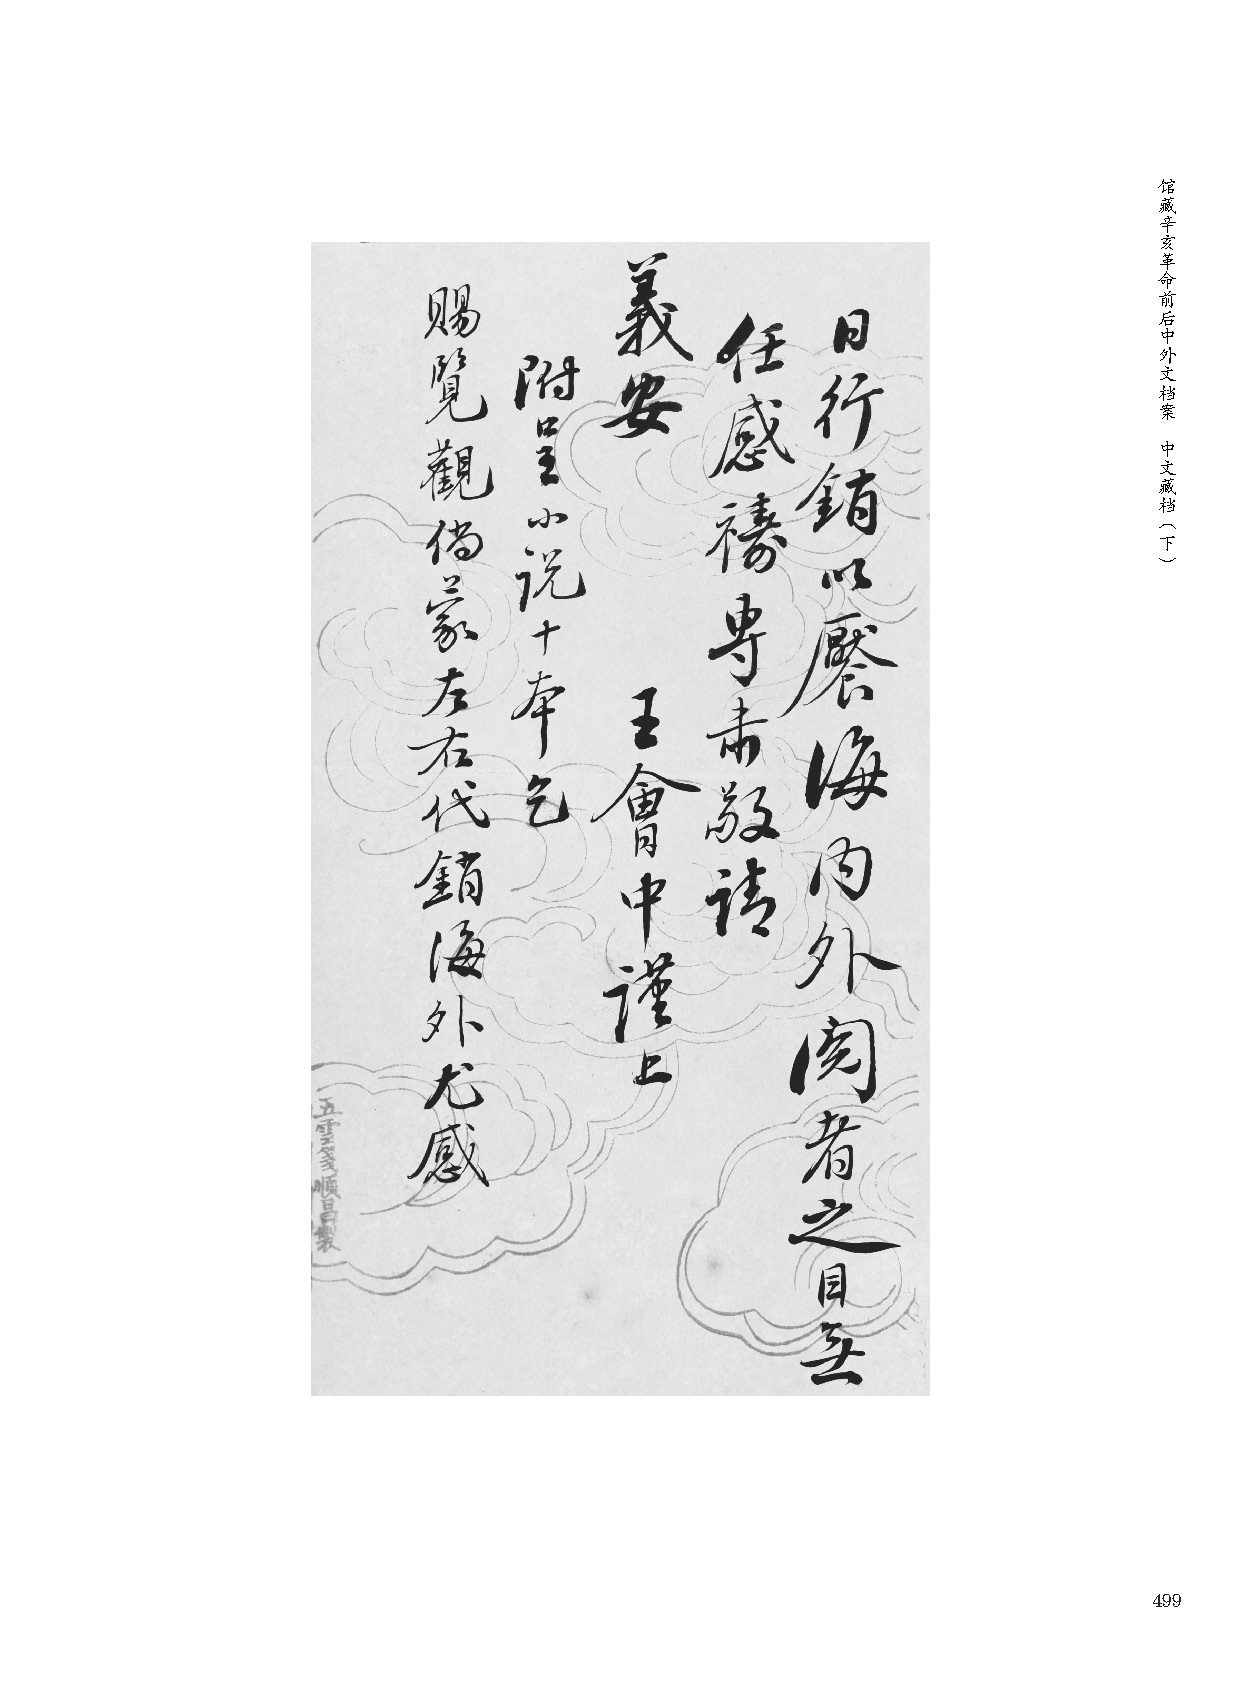 馆藏辛亥革命前后中外文档案 中文藏档（下）
日行銷以饜海内外閱者之目無
任感禱專肅敬請
義安
王會中謹上
附呈小说十本乞
賜覽觀倘蒙左右代銷海外尤感
五雲箋順昌製
499